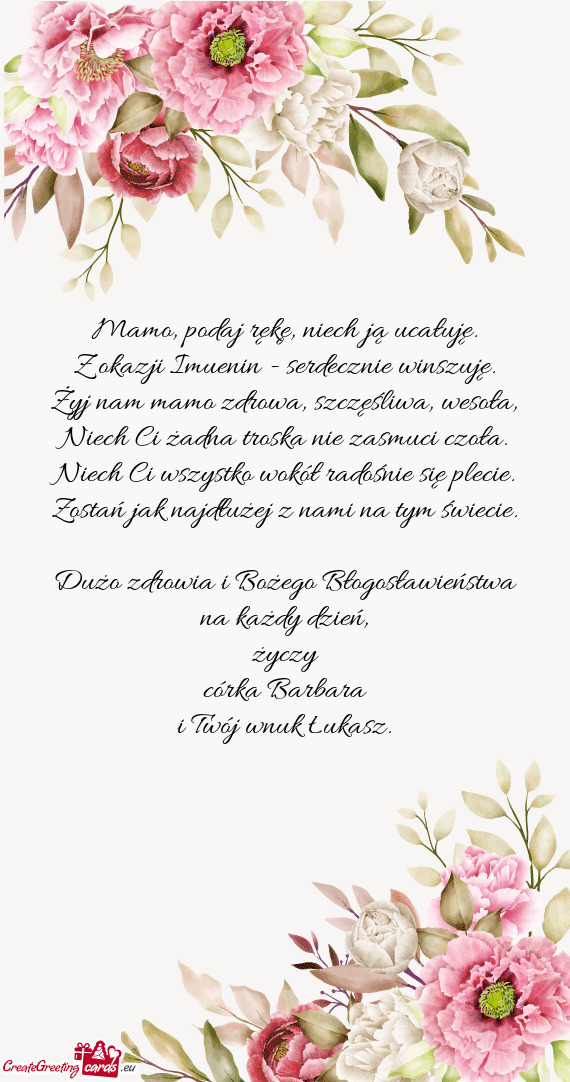 Mamo, podaj rękę, niech ją ucałuję.
Z okazji Imuenin - serdecznie winszuję.
Żyj nam mamo zdrowa, szczęśliwa, wesoła,
Niech Ci żadna troska nie zasmuci czoła.
Niech Ci wszystko wokół radośnie się plecie.
Zostań jak najdłużej z nami na tym świecie.
Dużo zdrowia i Bożego Błogosławieństwa
na każdy dzień,
życzy
córka Barbara
i Twój wnuk Łukasz.
CreateGreeting cards .eu